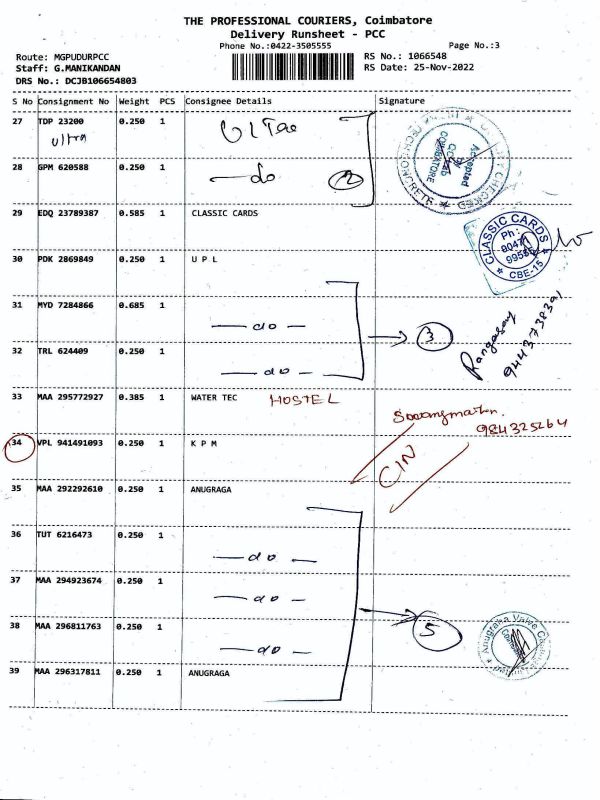 THE PROFESSIONAL COURIERS, Coimbatore
Delivery Runsheet - PCC
Phone No.:0422-3505555
Page No.:3
Route: MGPUDURPCC
RS No.: 1066548
Staff: G.MANIKANDAN
RS Date: 25-Nov-2022
DRS No.: DCJB106654803
S No Consignment No Weight PCS Consignee Details Signature
27 TDP 23200 0.250 1
Ultra
28 GPM 620588 0.250 1 do 2
Accepted
COIMBATORE
29 EDQ 23789387 0.585 1 CLASSIC CARDS
CLASSIC CARDS
Ph:
CBE-15
30 PDK 2869849 0.250 1 U P L
31 MYD 7284866 0.685 1 do 3
Rangasamy
9443738391
32 TRL 624409 0.250 1 do
33 MAA 295772927 0.385 1 WATER TEC HOSTEL
984325264
34 VPL 941491093 0.250 1 K P M
CIN
35 MAA 292292610 0.250 1 ANUGRAGA
36 TUT 6216473 0.250 1 do
37 MAA 294923674 0.250 1 do
38 MAA 296811763 0.250 1 do 5
Anugraha Valve
39 MAA 296317811 0.250 1 ANUGRAGA